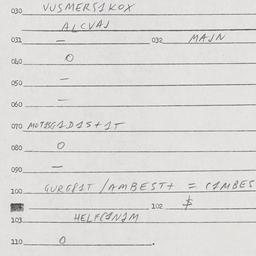 030 VUSMERS1KOX
ALCVAJ
031 — 032 MAJN
040 O
050 —
060 —
070
080 O
090 —
100 GURGP1T /AMBEST+ = C1MBES
102 $
103 HELFC1N1M
110 O